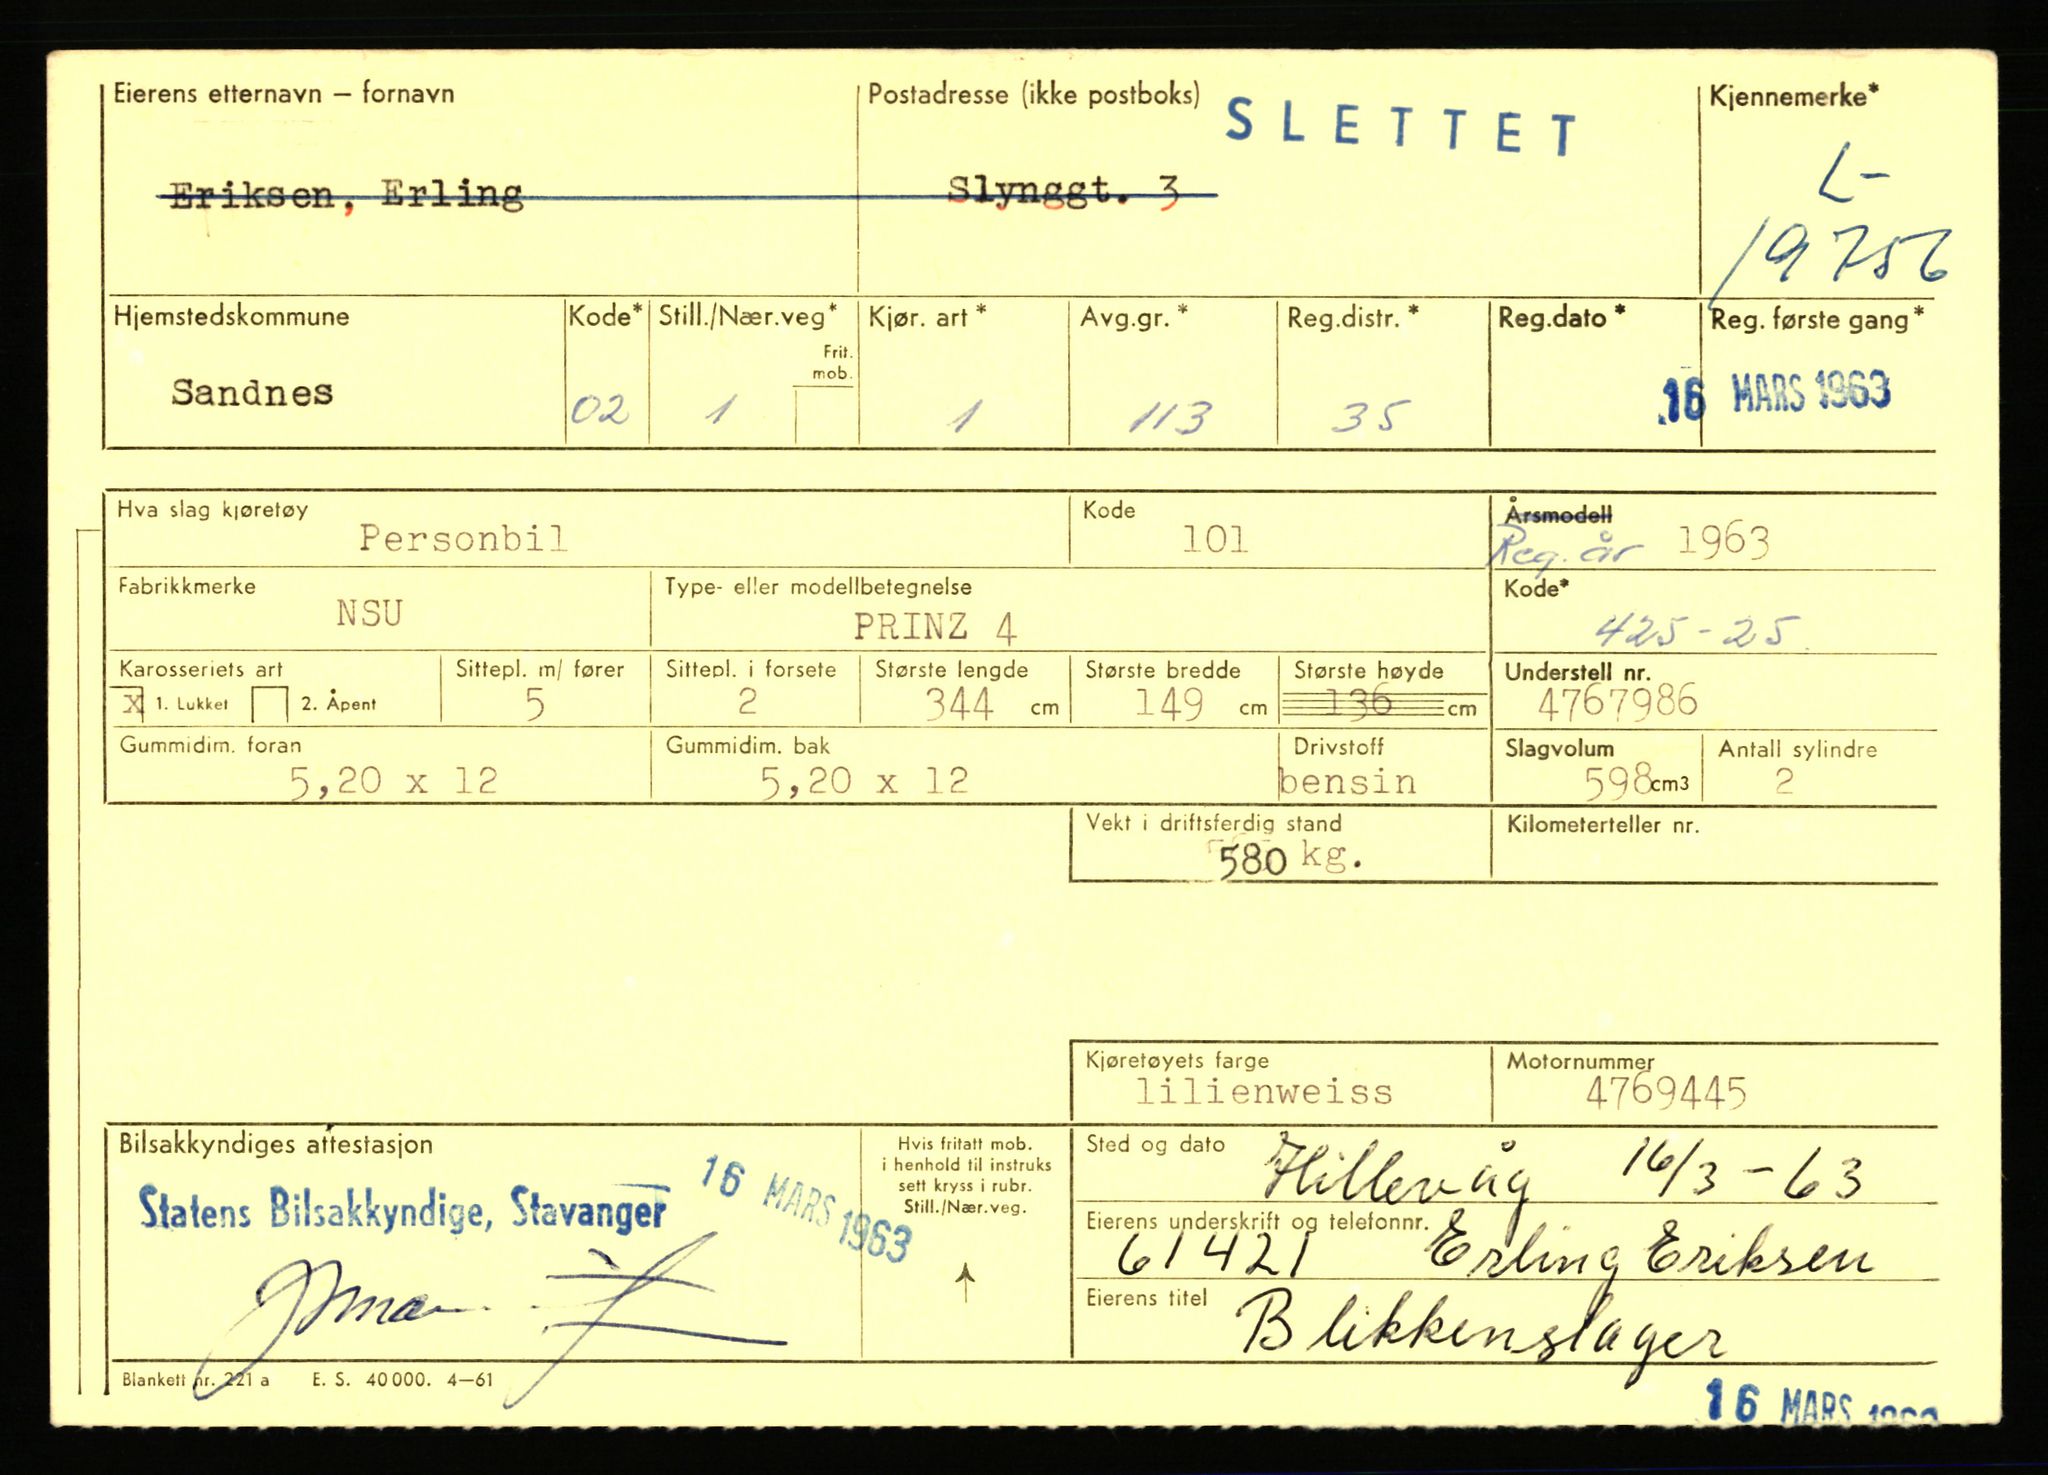 Eierens etternavn – fornavn
Postadresse (ikke postboks)
SLETTET
Kjennemerke*
Eriksen, Erling
Slynggt. 3
L-
19756
Hjemstedskommune
Kode*
Still./Nær.veg*
Frit. mob.
Kjør. art*
Avg.gr.*
Reg.distr.*
Reg.dato*
Reg. første gang*
Sandnes
02
1
1
113
35
16 MARS 1963
Hva slag kjøretøy
Personbil
Kode
101
Årsmodell
Reg. år
1963
Fabrikkmerke
NSU
Type- eller modellbetegnelse
PRINZ 4
Kode*
425-25
Karosseriets art
x 1. Lukket
2. Åpent
Sittepl. m/ fører
5
Sittepl. i forsete
2
Største lengde
344 cm
Største bredde
149 cm
Største høyde
136 cm
Understell nr.
4767986
Gummidim. foran
5,20 x 12
Gummidim. bak
5,20 x 12
Drivstoff
bensin
Slagvolum
598 cm3
Antall sylindre
2
Vekt i driftsferdig stand
580 kg.
Kilometerteller nr.
Kjøretøyets farge
lilienweiss
Motornummer
4769445
Bilsakkyndiges attestasjon
Statens Bilsakkyndige, Stavanger
16 MARS 1963
Hvis fritatt mob.
i henhold til instruks
sett kryss i rubr.
Still./Nær.veg.
Sted og dato
Hillevåg 16/3-63
Eierens underskrift og telefonnr.
61421 Erling Eriksen
Eierens titel
Blikkenslager
Blankett nr. 221 a E. S. 40 000. 4—61
16 MARS 1963